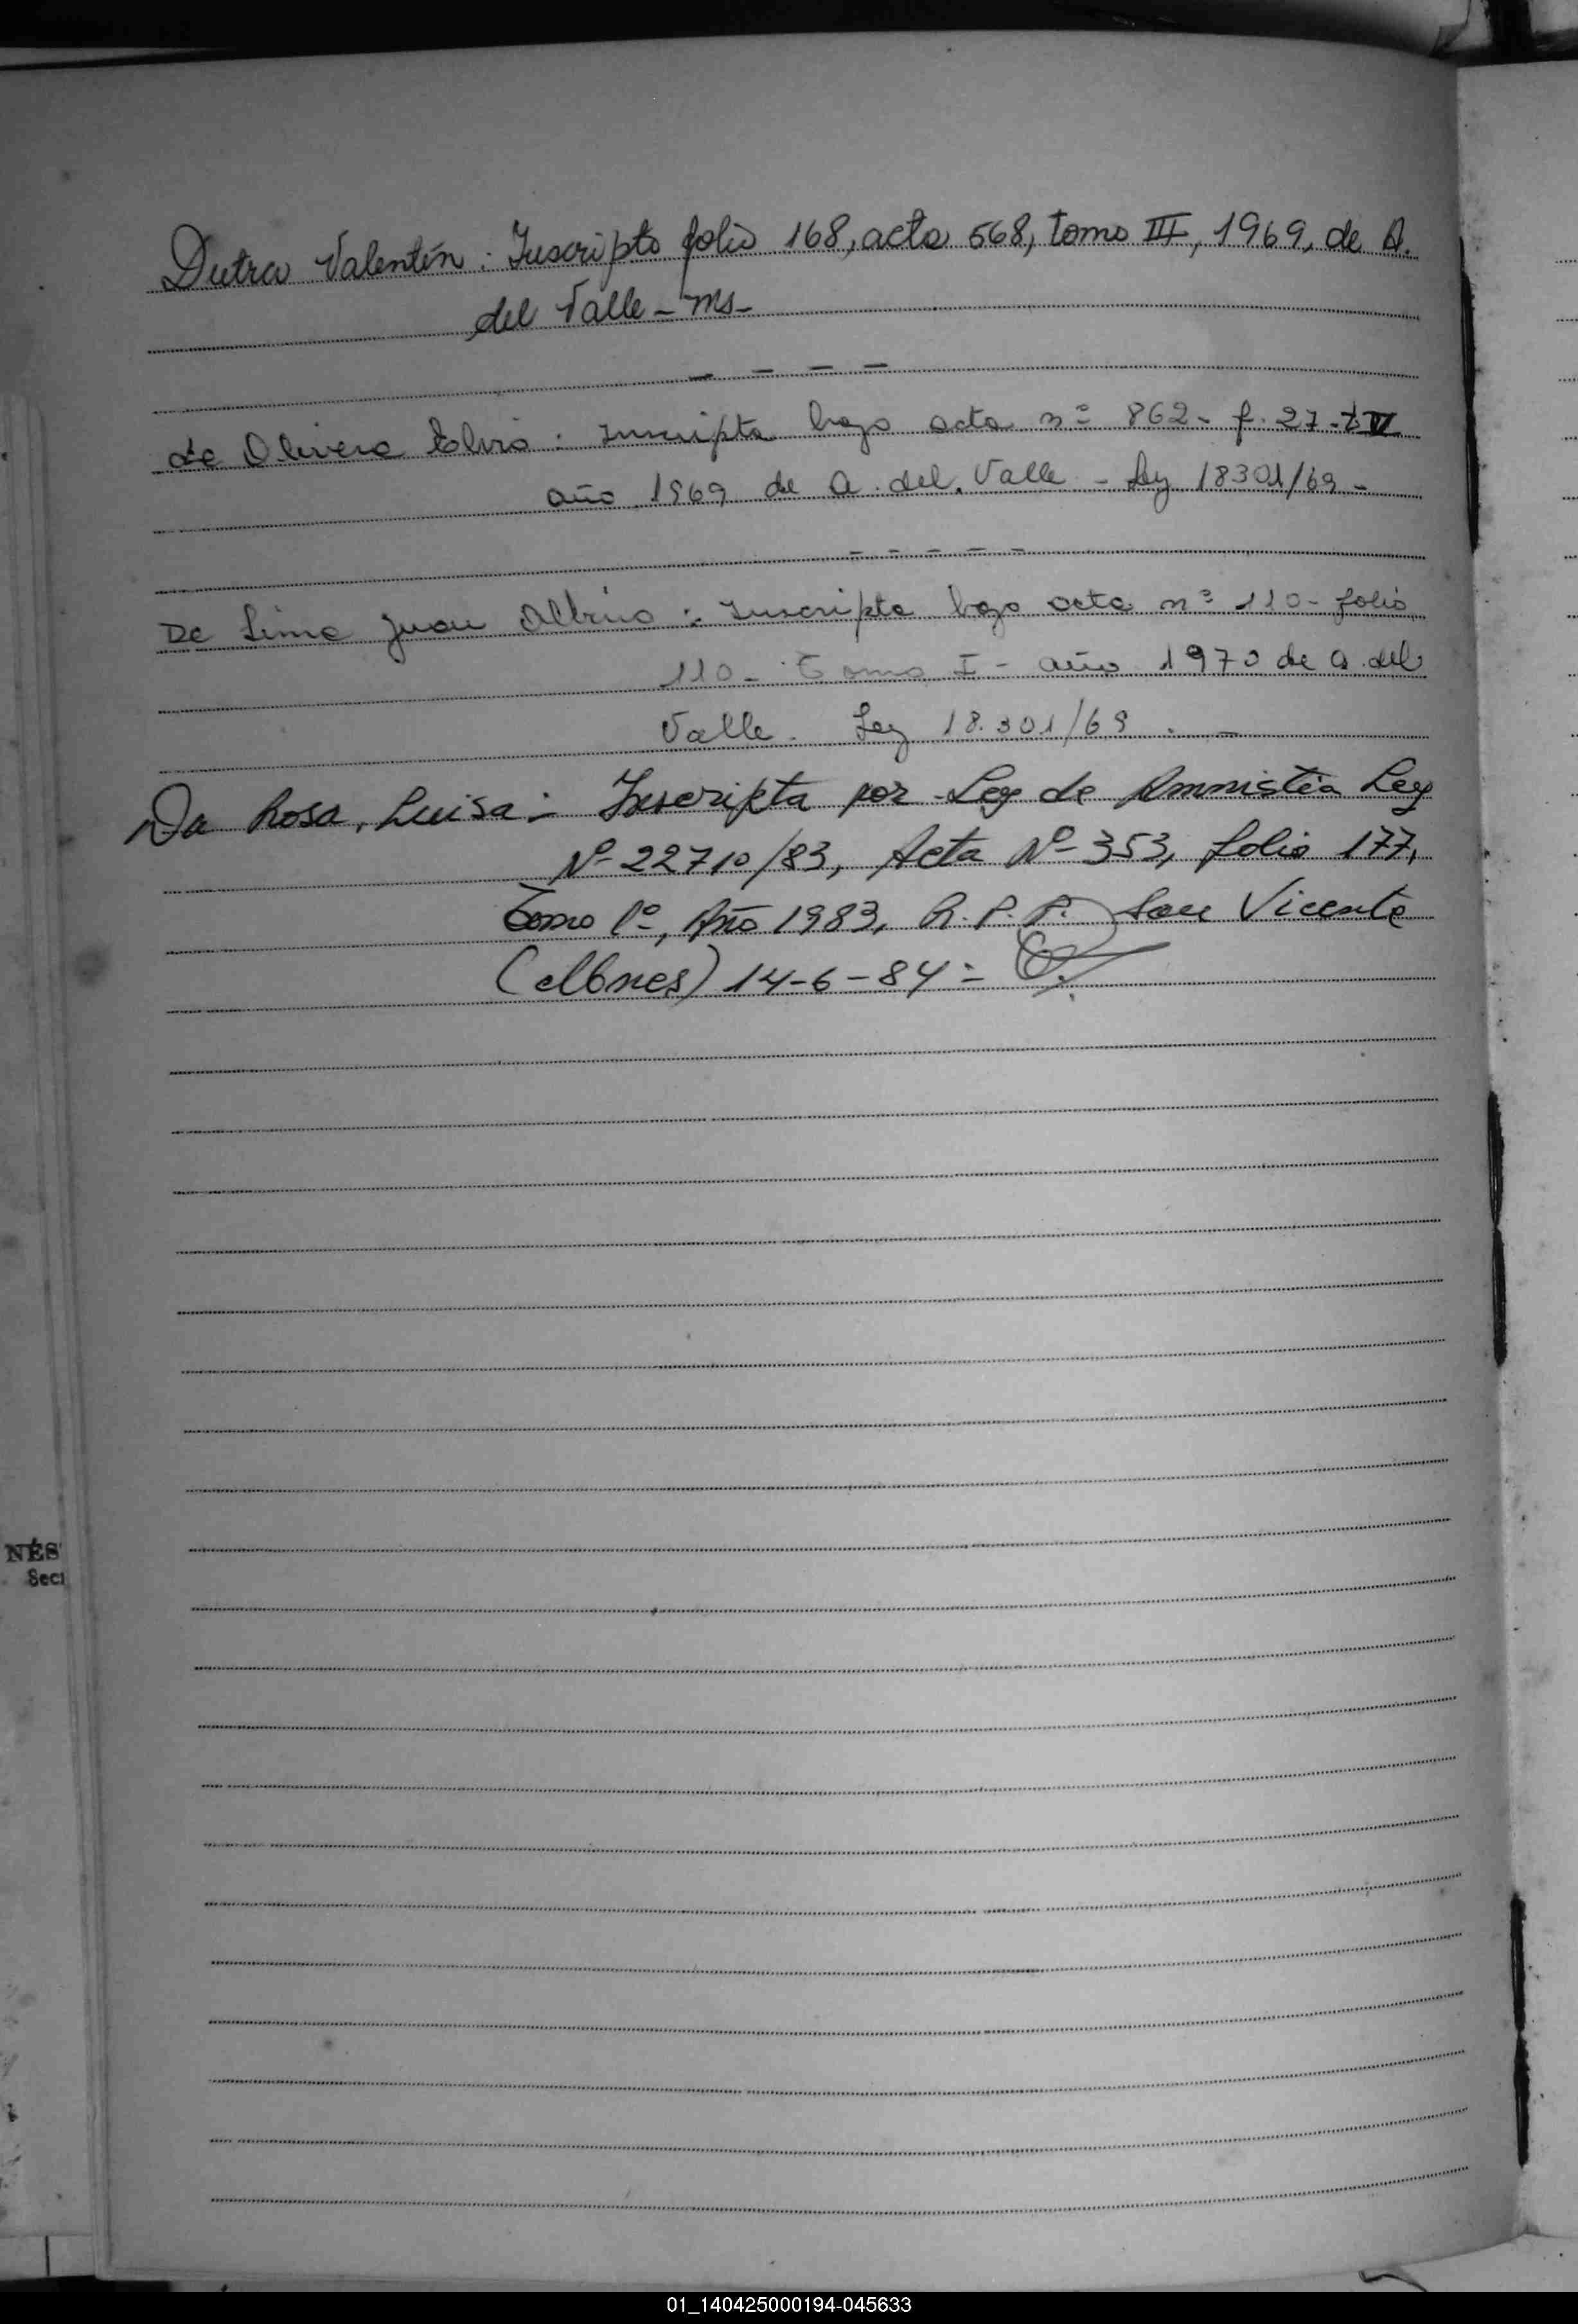 Dutra Valentín : Inscripto folio 168, acta 568, tomo III, 1969, de A.
del Valle - Ms -
de Olivera Elvio : Inscripta bajo acta nº 862 - f. 27 - t IV
año 1969 de A. del Valle - Ley 18301/69 -
De Lima Juan Albino : Inscripta bajo acta nº 110 - folio
110 - Tomo I - año 1970 de A. del
Valle - Ley 18.301/69 . -
Da Rosa, Luisa : Inscripta por Ley de Amnistía Ley
Nº 22710/83, Acta Nº 353, folio 177,
Tomo 1º, Año 1983, R. P. P. San Vicente
(Mnes) 14-6-84 =
NÉS
Secr
01_140425000194-045633